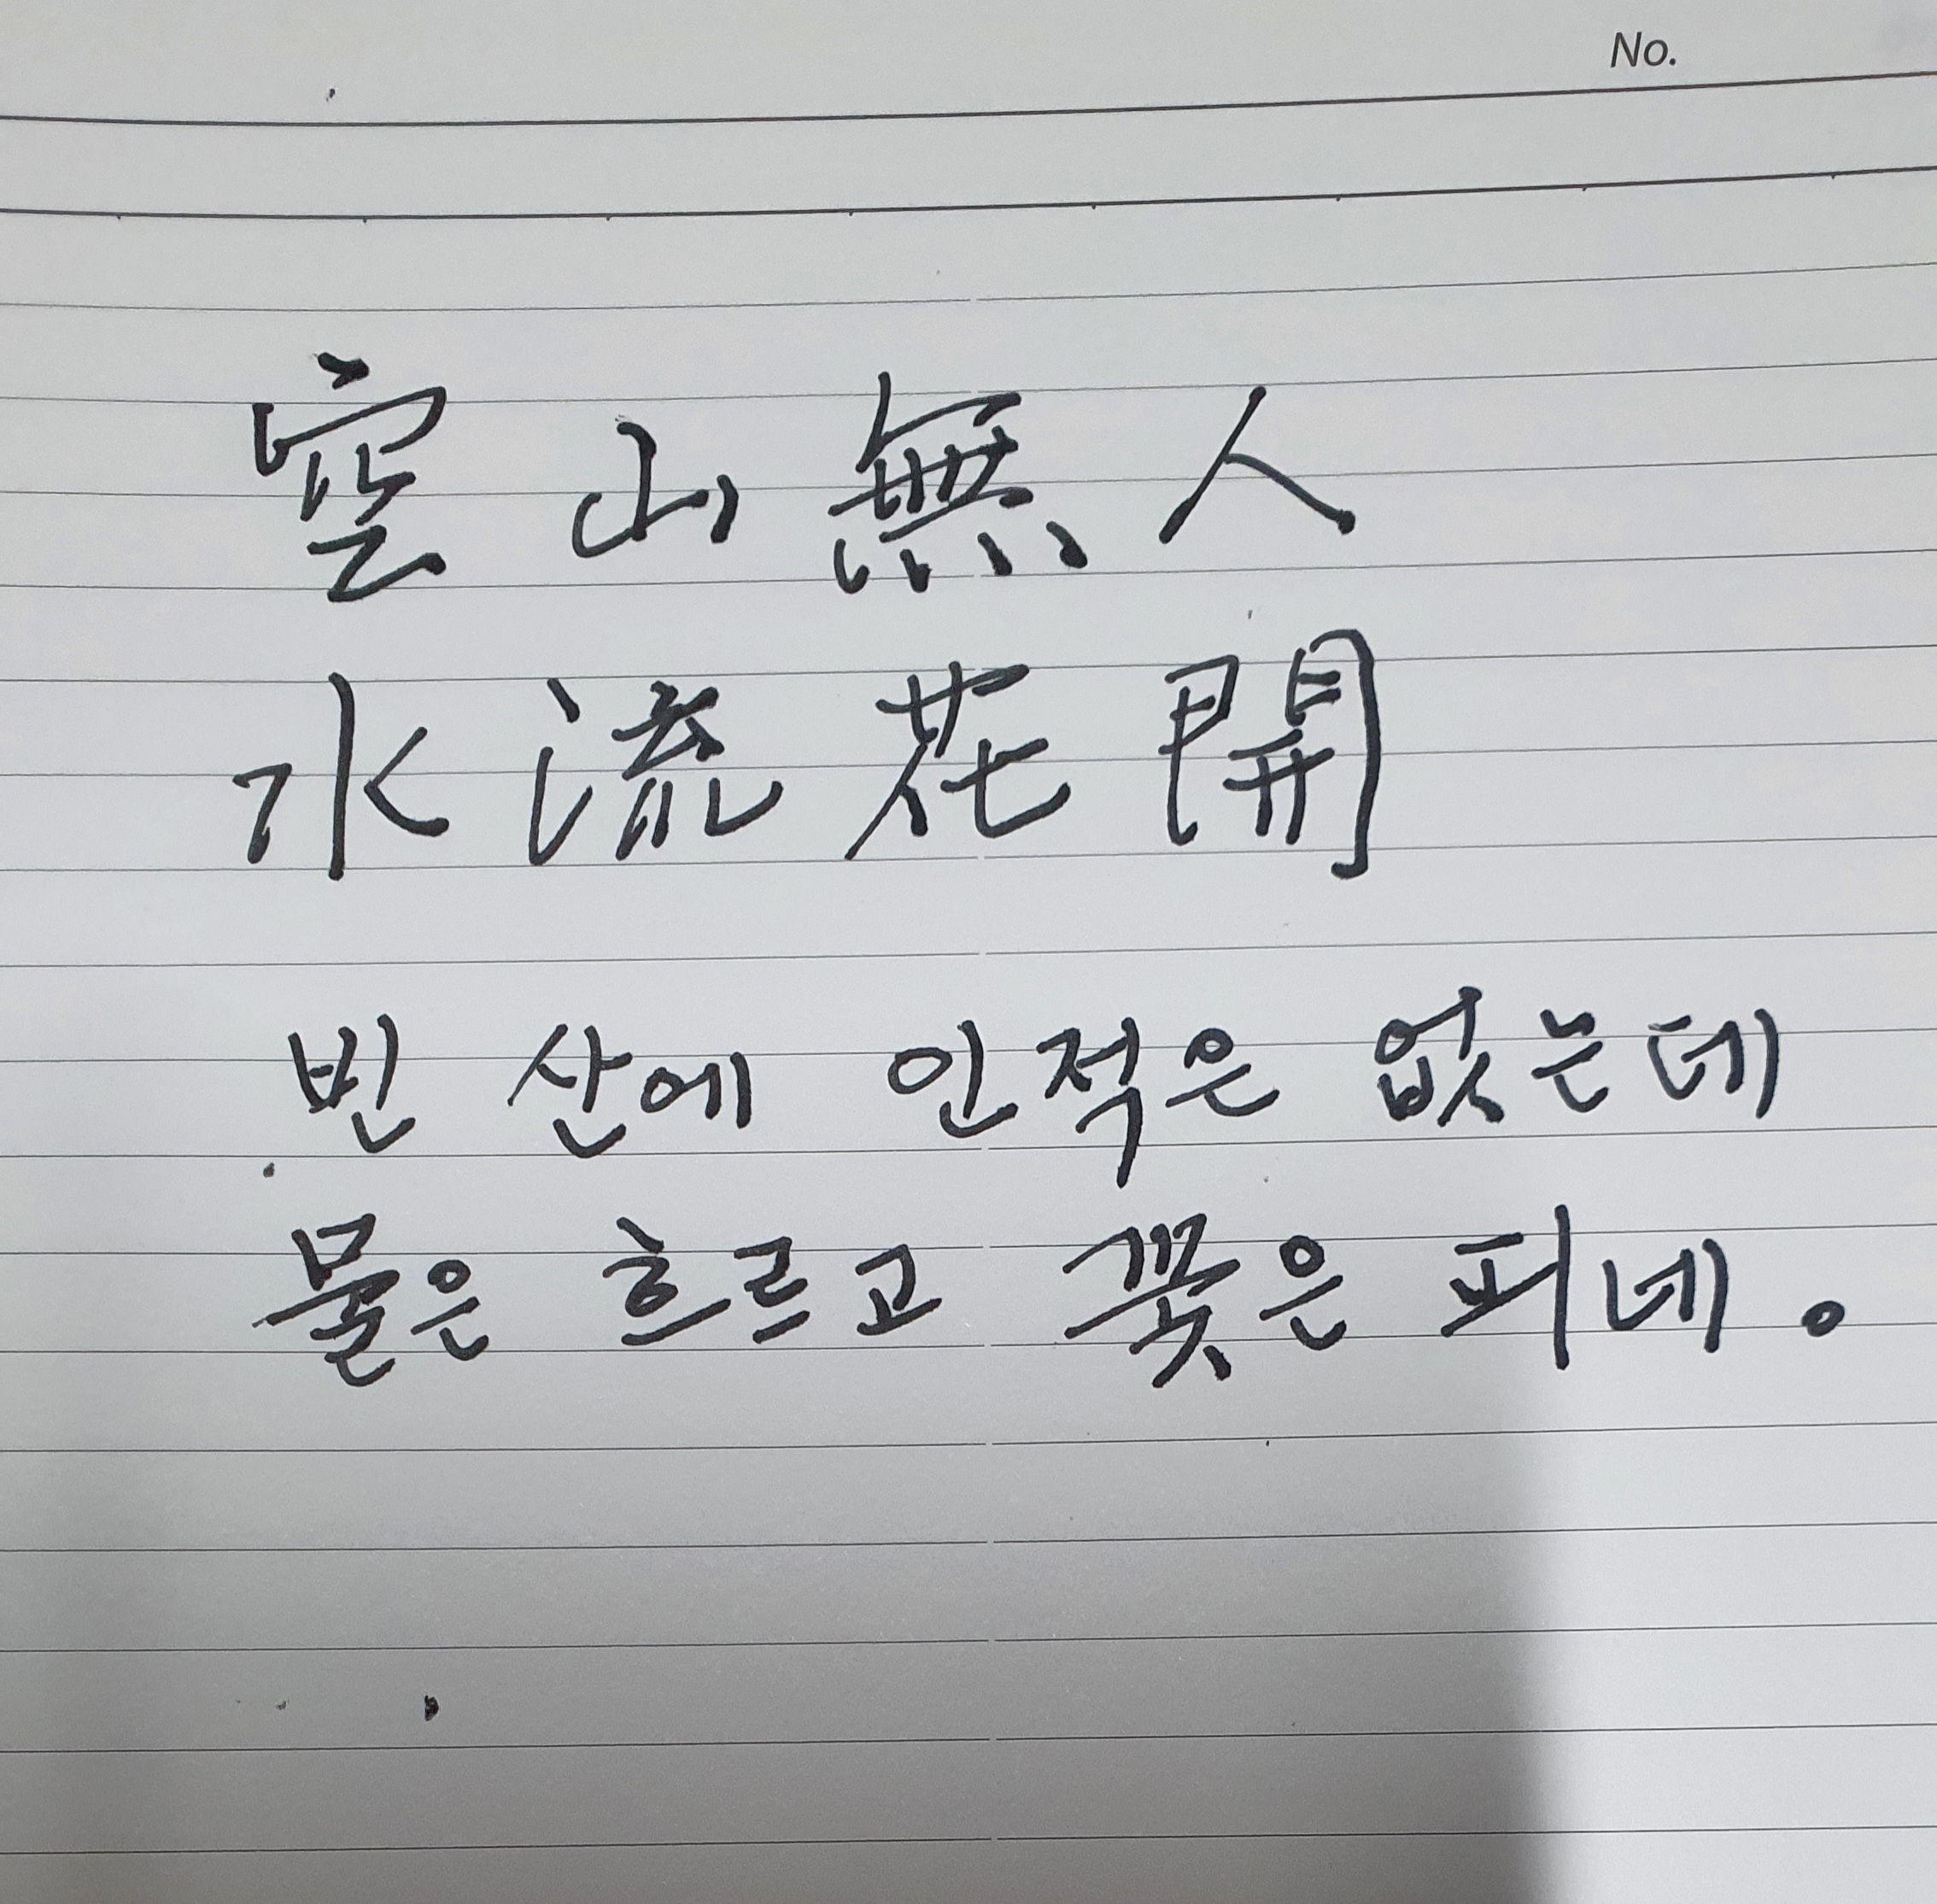 No.
空山無人
水流花開
빈 산에 인적은 없는데
물은 흐르고 꽃은 피네.